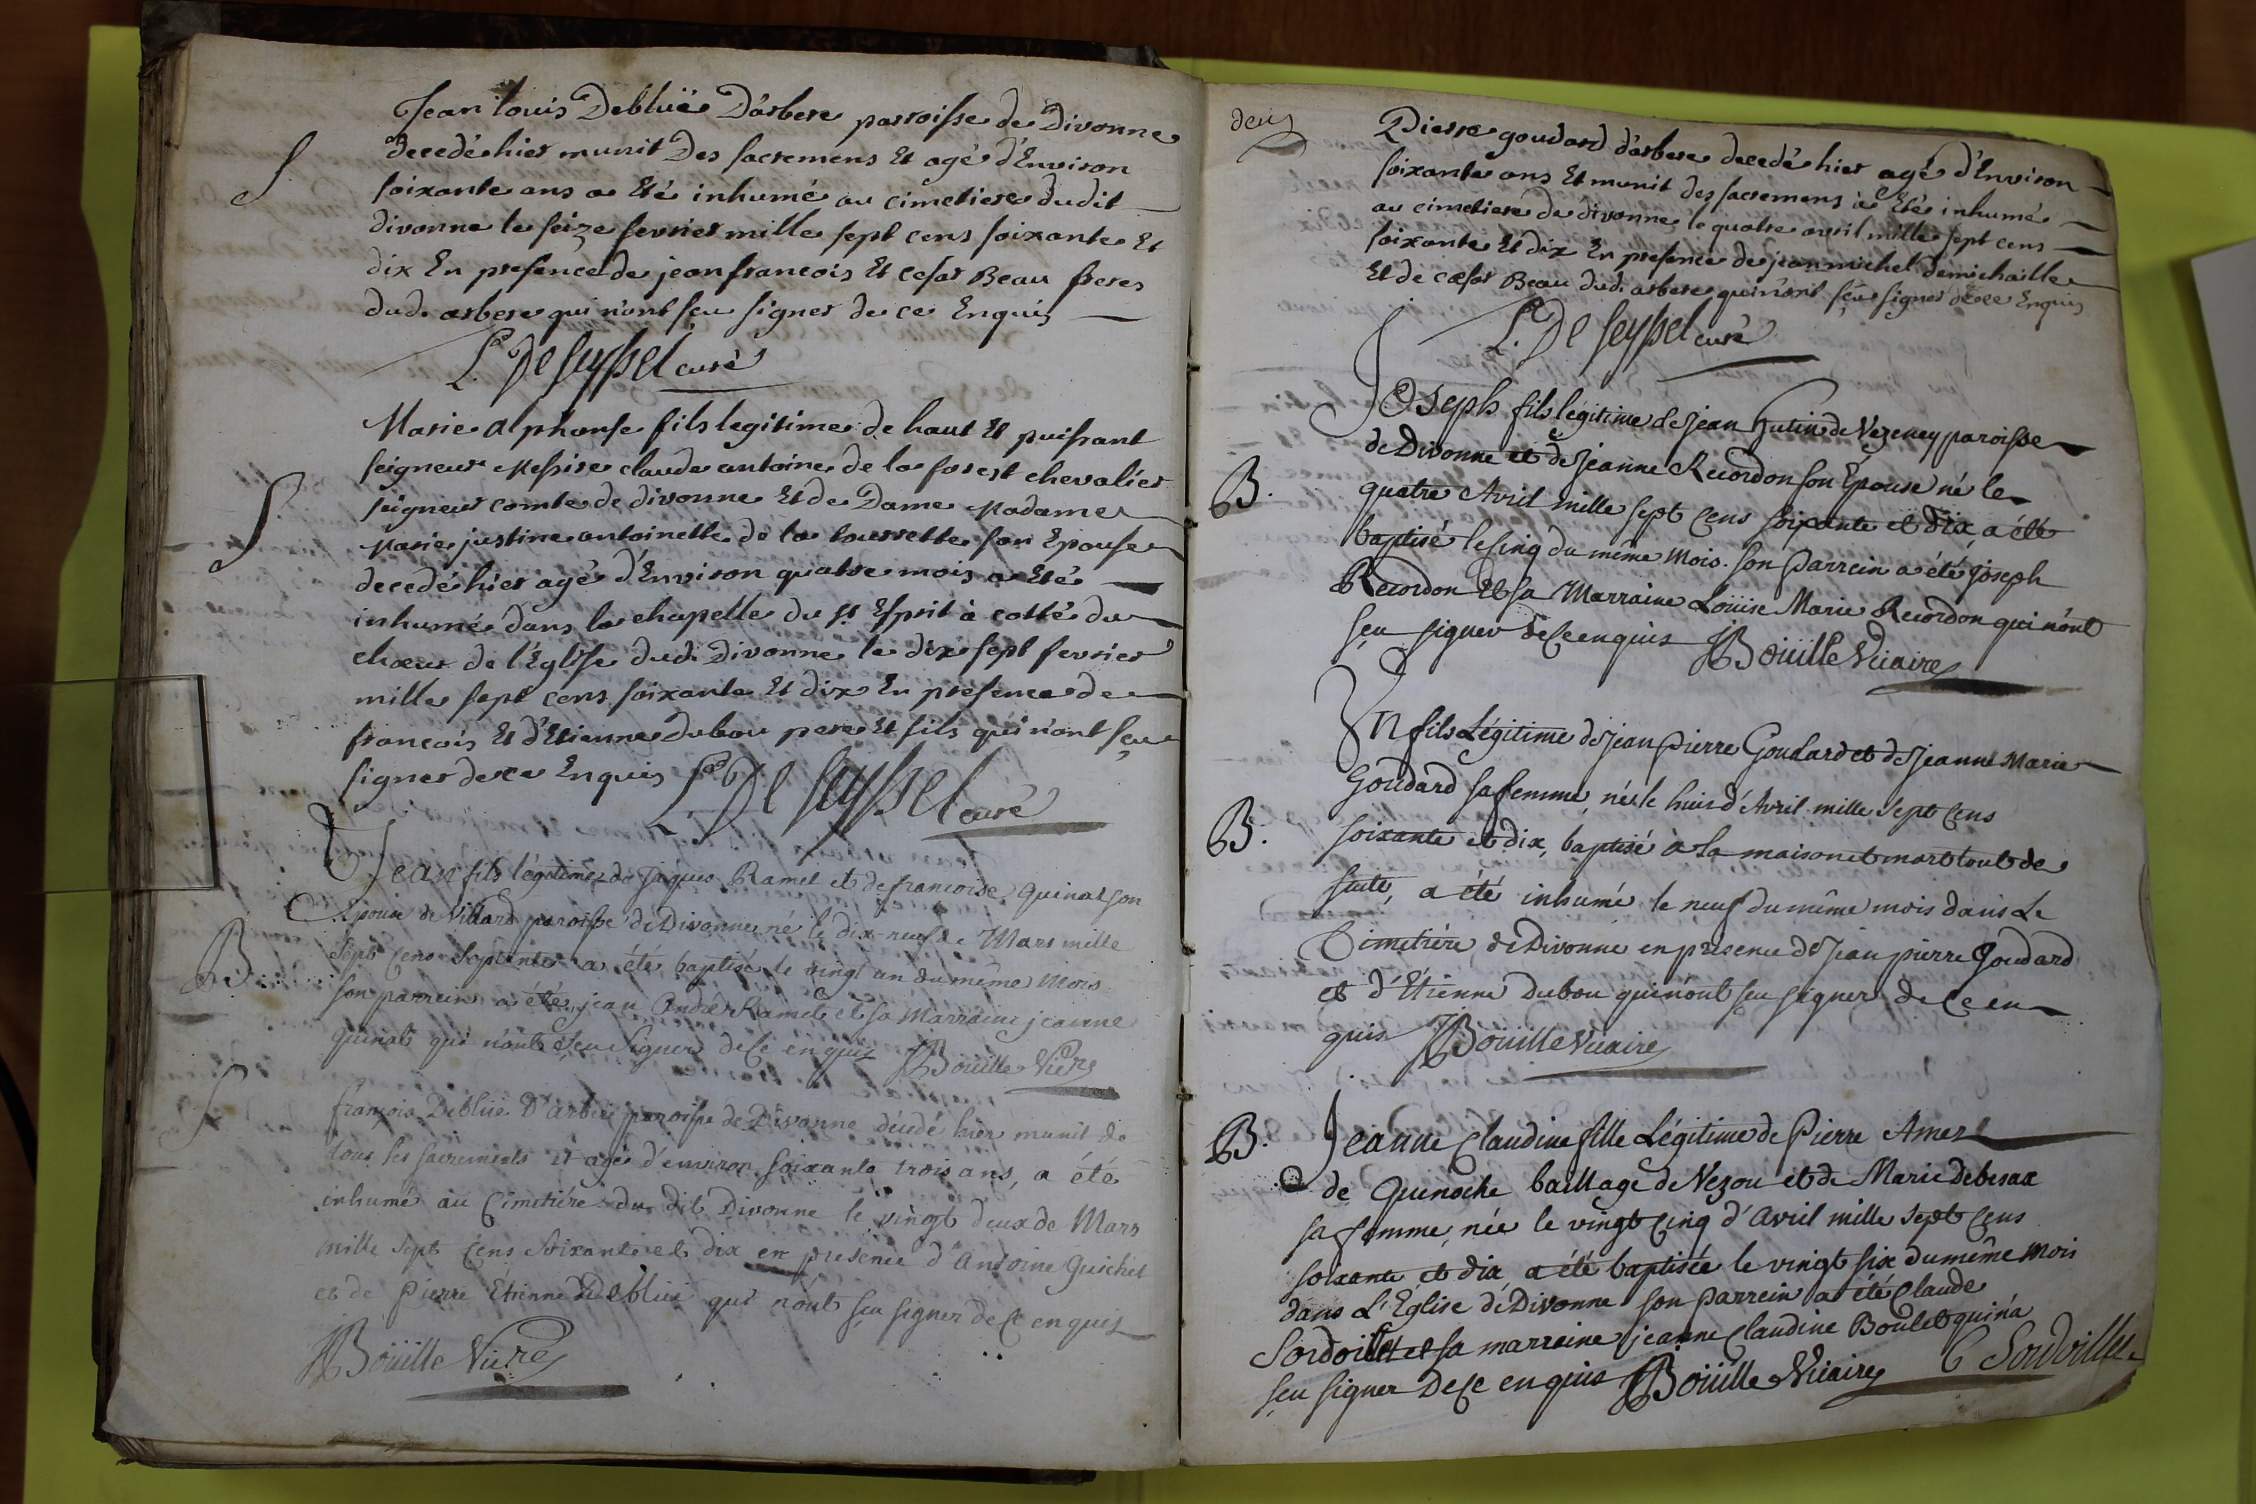 Jean louis Debluë D'arbere parroisse de Divonne
decedé hier munit Des sacremens Et agé d'Environ
S.
soixante ans a Eté inhumé au cimetiere dudit
divonne le seize fevrier mille sept cens soixante Et
dix En presence de jean francois Et cesar Beau freres
dud. arbere qui n'ont sçu signer de ce Enquis
L. De Seyssel curé
Marie alphonse fils legitime de haut Et puissant
seigneur Messire claude antoine de la forest chevalier
seigneur comte de divonne Et de Dame Madame
S
Marie justine antoinette de la tourrette son Epouse
decedé hier agé d'Environ quatre mois a Eté
inhumé dans la chapelle du St. Esprit à cotté du
chœur de l'Eglise dud. Divonne le dix sept fevrier
mille sept cens soixante Et dix En presence de
francois Et d'Etienne Dubou pere Et fils qui n'ont sçu
signer de ce Enquis L. De Seyssel curé
Jean fils légitime de Jaques Ramel et de francoise Quinat son
Epouse de Villard paroisse de Divonne né le dix-neuf de Mars mille
B.
sept cens septente a été baptisé le vingt un du même Mois
son parrein a été jean André Ramel et sa Marraine jeanne
Quinat qui n'ont sçu Signer de ce enquis JBoüille Vicre
S
françois Debluë D'arbere paroisse de Divonne décédé hier munit de
tous les sacrements et agé d'environ soixante trois ans, a été
inhumé au Cimetiére du dit Divonne le vingt deux de Mars
mille sept cens Soixante et dix en presence d'Antoine Guichet
et de Pierre Etienne Debluë qui n'ont sçu signer de ce enquis
JBoüille Vicre
deux
Pierre goudard d'arbere decedé hier agé d'Environ
soixante ans Et munit des sacremens à Eté inhumé
au cimetiere de divonne le quatre avril mille sept cens
soixante Et dix En presence de jean michel demichaille
Et de cæsar Beau dud. arbere qui n'ont sçu signer de ce Enquis
L. De Seyssel curé
Joseph fils légitime de Jean Hutin de Vezeney paroisse
de Divonne et de Jeanne Recordon son Épouse né le
B.
quatre Avril mille sept cens soixante et dix a été
baptisé le cinq du même Mois. son Parrein a été joseph
Recordon Et sa Marraine Loüise Marie Recordon qui n'ont
sçu signer de ce enquis JBoüille Vicaire
Un fils Légitime de Jean Pierre Goudard et de Jeanne Marie
Goudard sa femme, né le huit d'Avril mille sept cens
B.
soixante et dix, baptisé à la maison et mort tout de
suite, a été inhumé le neuf du même mois dans le
Cimetiére de Divonne en presence de Jean pierre Goudard
et d'Étienne Dubou qui n'ont sçu signer de ce en
quis JBoüille Vicaire
B.
Jeanne Claudine fille Légitime de Pierre Amez
de Quenoche baillage de Vezou et de Marie Debesax
sa femme, née le vingt cinq d'avril mille sept cens
soixante et dix, a été baptisée le vingt six du même mois
dans L'Église de Divonne son Parrein a été Claude
Sordoillet et sa marraine jeanne Claudine Boulet qui n'a
sçu signer de ce enquis JBoüille Vicaire C Sordoillet